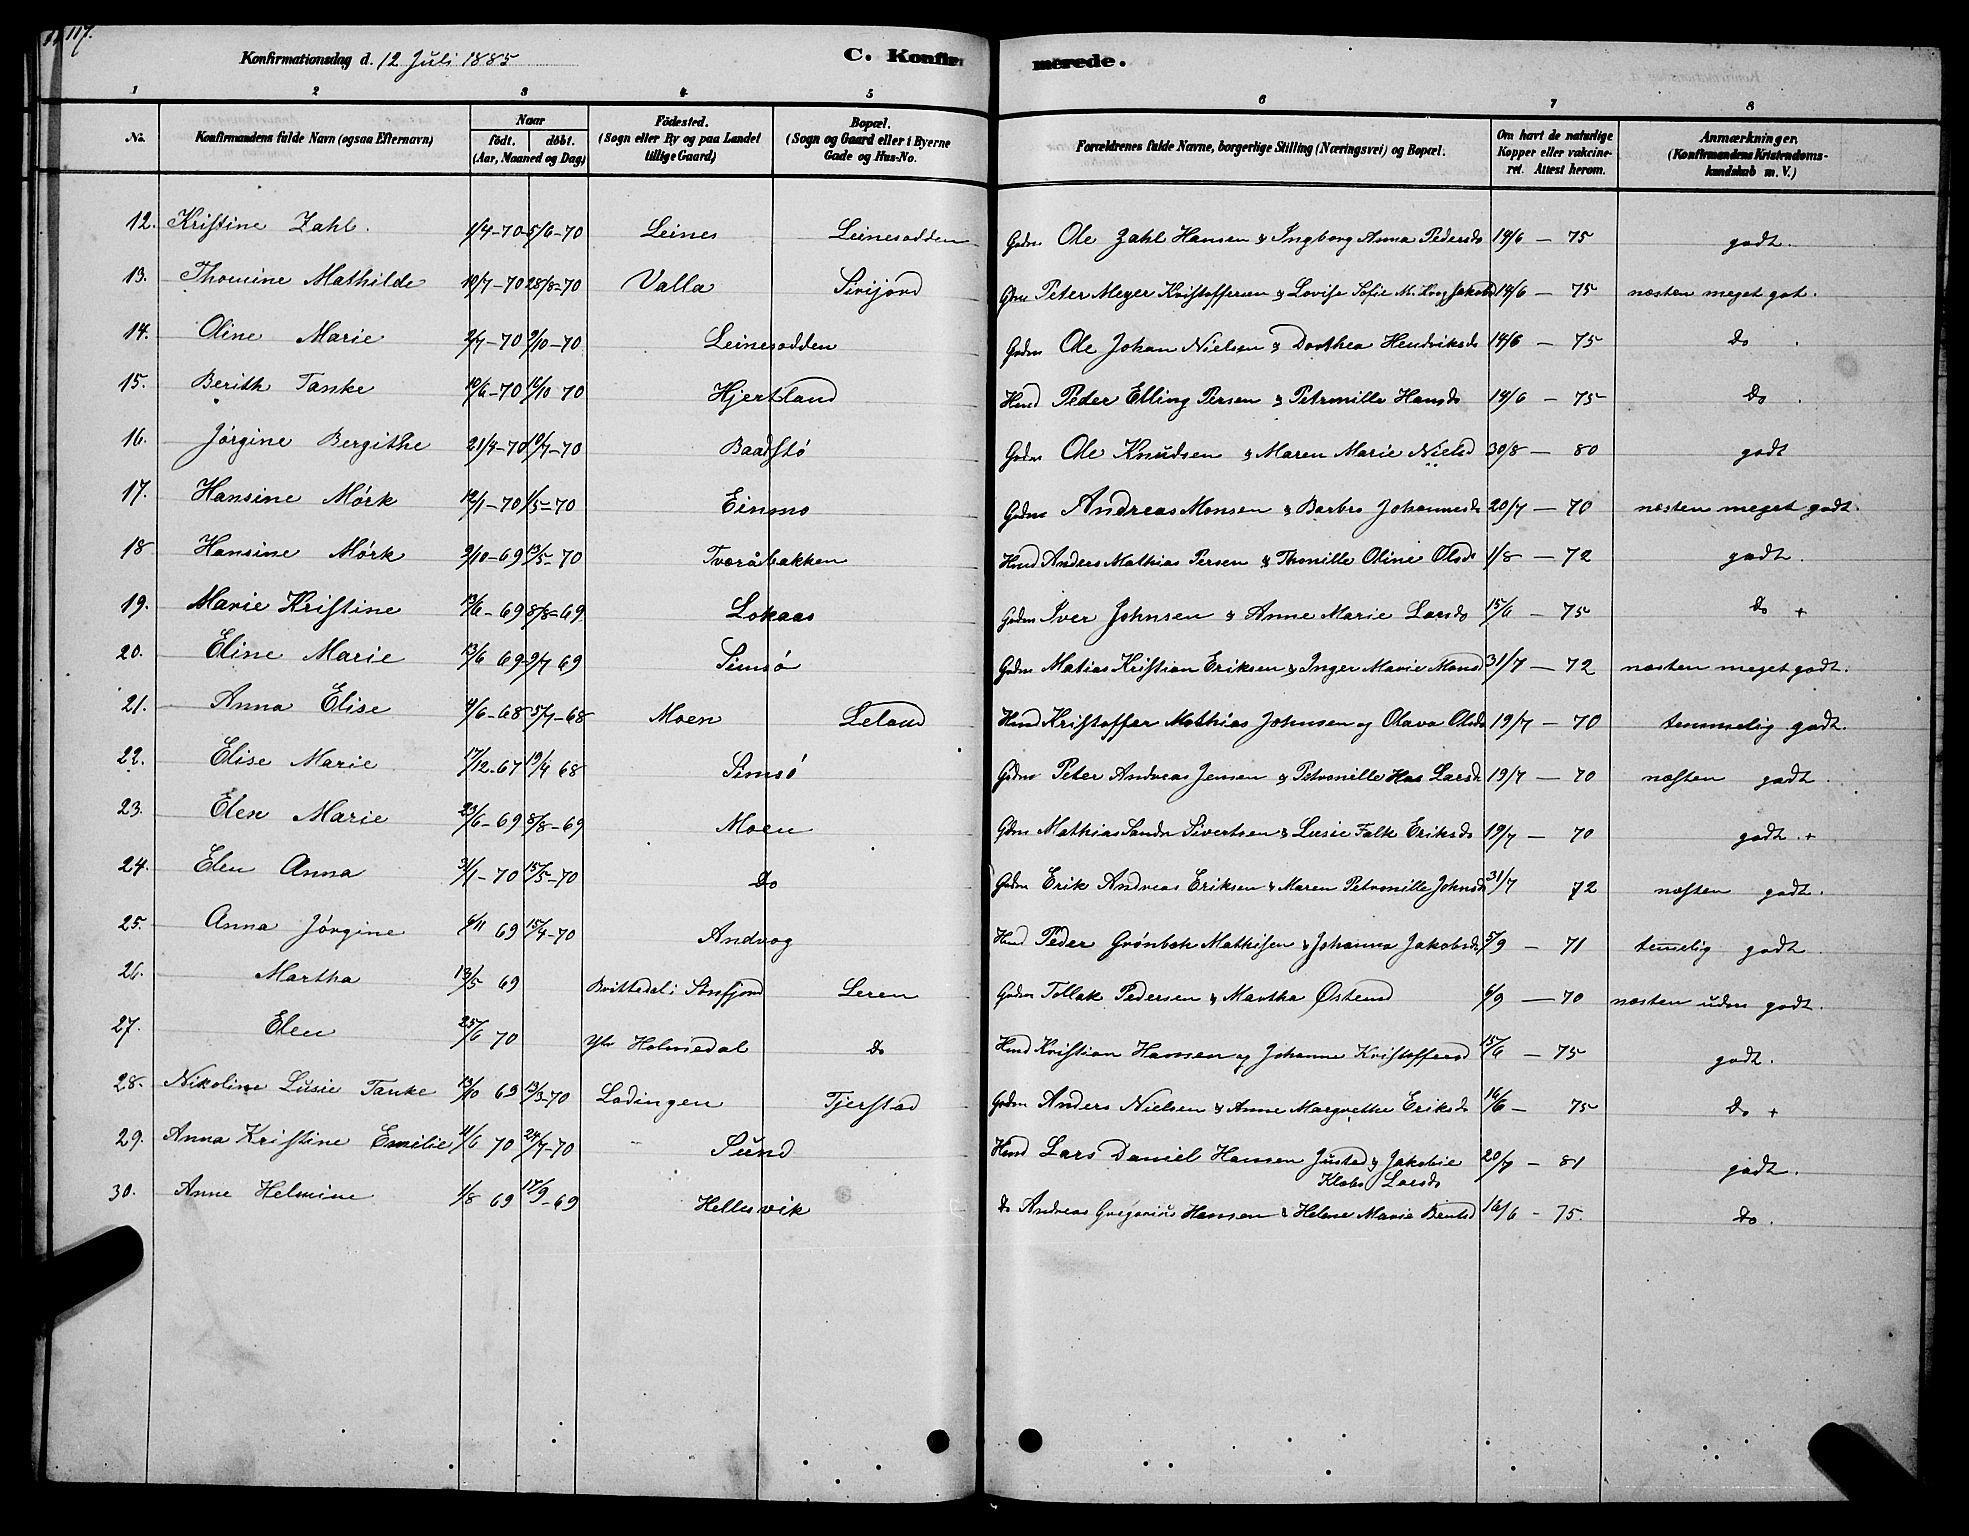 117.
Konfirmationsdag d. 12 Juli 1885
C. Konfirmerede.
1 2 3 4 5 6 7 8
No. Konfirmandens fulde Navn (ogsaa Efternavn) Naar født. døbt. (Aar, Maaned og Dag) Fødested. (Sogn eller By og paa Landet tillige Gaard) Bopæl. (Sogn og Gaard eller i Byerne Gade og Hus-No. Forældrenes fulde Navne, borgerlige Stilling (Næringsvei) og Bopæl. Om havt de naturlige Kopper eller vakcineret. Attest herom. Anmærkninger. (Konfirmandens Kristendomskundskab m. V.)
12. Kristine Zahl. 1/4-70 5/6-70 Leines Leinesodden Gdm Ole Zahl Hansen & Ingborg Anna Pedersd 14/6 - 75 godt.
13. Thomine Mathilde 10/7-70 28/8-70 Valla Sirijord Gdm Peter Meyer Kristoffersen & Lovise Sofie Jakobsd 14/6 - 75 næsten meget got.
14. Oline Marie 2/7-70 9/10-70 Leinesodden Gdm Ole Johan Nielsen & Dorthea Hendriksd 14/6 - 75 Do.
15. Berith Tanke 10/6-70 16/10 70 Hjertland Hmd Peder Elling Persen & Petronille Hansd 14/6 - 75 Do.
16. Jørgine Bergithe 21/4-70 10/7-70 Baadstø Gdm Ole Knudsen & Maren Marie Nielsd 30/8 - 80 godt
17. Hansine Mørk 12/1-70 1/5-70 Einmo Gdm Andreas Monsen & Barbro Johannesd 20/7 - 70 næsten meget godt.
18 Hansine Mørk 9/10-69 13/5-70 Tveråbakken Hmd Anders Mathias Persen & Thonille Oline Olsd 1/8 - 72 godt.
19. Marie Kristine 13/6-69 8/8-69 Lokaas Gdm Iver Johnsen & Anne Marie Larsd 15/6 - 75 Do +
20. Eline Marie 13/6 69 9/7 69 Simsø Gdm Matias Kristian Eriksen & Inger Marie Monsd 31/7 - 72 næsten meget godt.
21. Anna Elise 4/6-68 5/7-68 Moen Leland Hmd Kristoffer Mathias Johnsen og Olava Olsd 19/7 - 70 temmelig godt.
22. Elise Marie 17/12-67 19/4 68 Simsø Gdm Peter Andreas Jensen & Petronille Larsd 19/7 - 70 næsten godt.
23. Elen Marie 23/6-69 8/8-69 Moen Gdm Mathias Sandn Sivertsen & Lusie Falk Eriksd 19/7 - 70 godt. +
24. Elen Anna 31/1-70 15/5-70 Do Gdm Erik Andreas Eriksen & Maren Petronille Johnsd 31/7 72 næsten godt.
25. Anna Jørgine 6/11 69 15/4-70 Andvog Hmd Peder Grønbek Mathisen & Johanna Jakobsd 5/9 - 71 temelig godt.
26. Martha 13/5 69 Sønfjord Leren Gdm Tollak Pedersen & Martha Østensd 6/9 - 70 næsten uden godt.
27. Elen 25/6 70 Ytr Holmedal Do Hmd Kristian Hansen og Johanne Kristoffersd 15/6 - 75 godt.
28. Nikoline Lusie Tanke 13/10 69 13/3-70 Lødingen Tjerstad Gdm Anders Nielsen & Anne Margrethe Eriksd 16/6 - 75 Do +
29. Anna Kristine Emilie 11/6 70 24/7-70 Sund Hmd Lars Daniel Hansen Justad & Jakobie Klabo Larsd 20/7 - 81 godt.
30. Anne Helmine 1/8 69 17/9-69 Hellesvik Do Andreas Gregorius Hansen & Helene Marie Bentsd 16/6 - 75. Do.